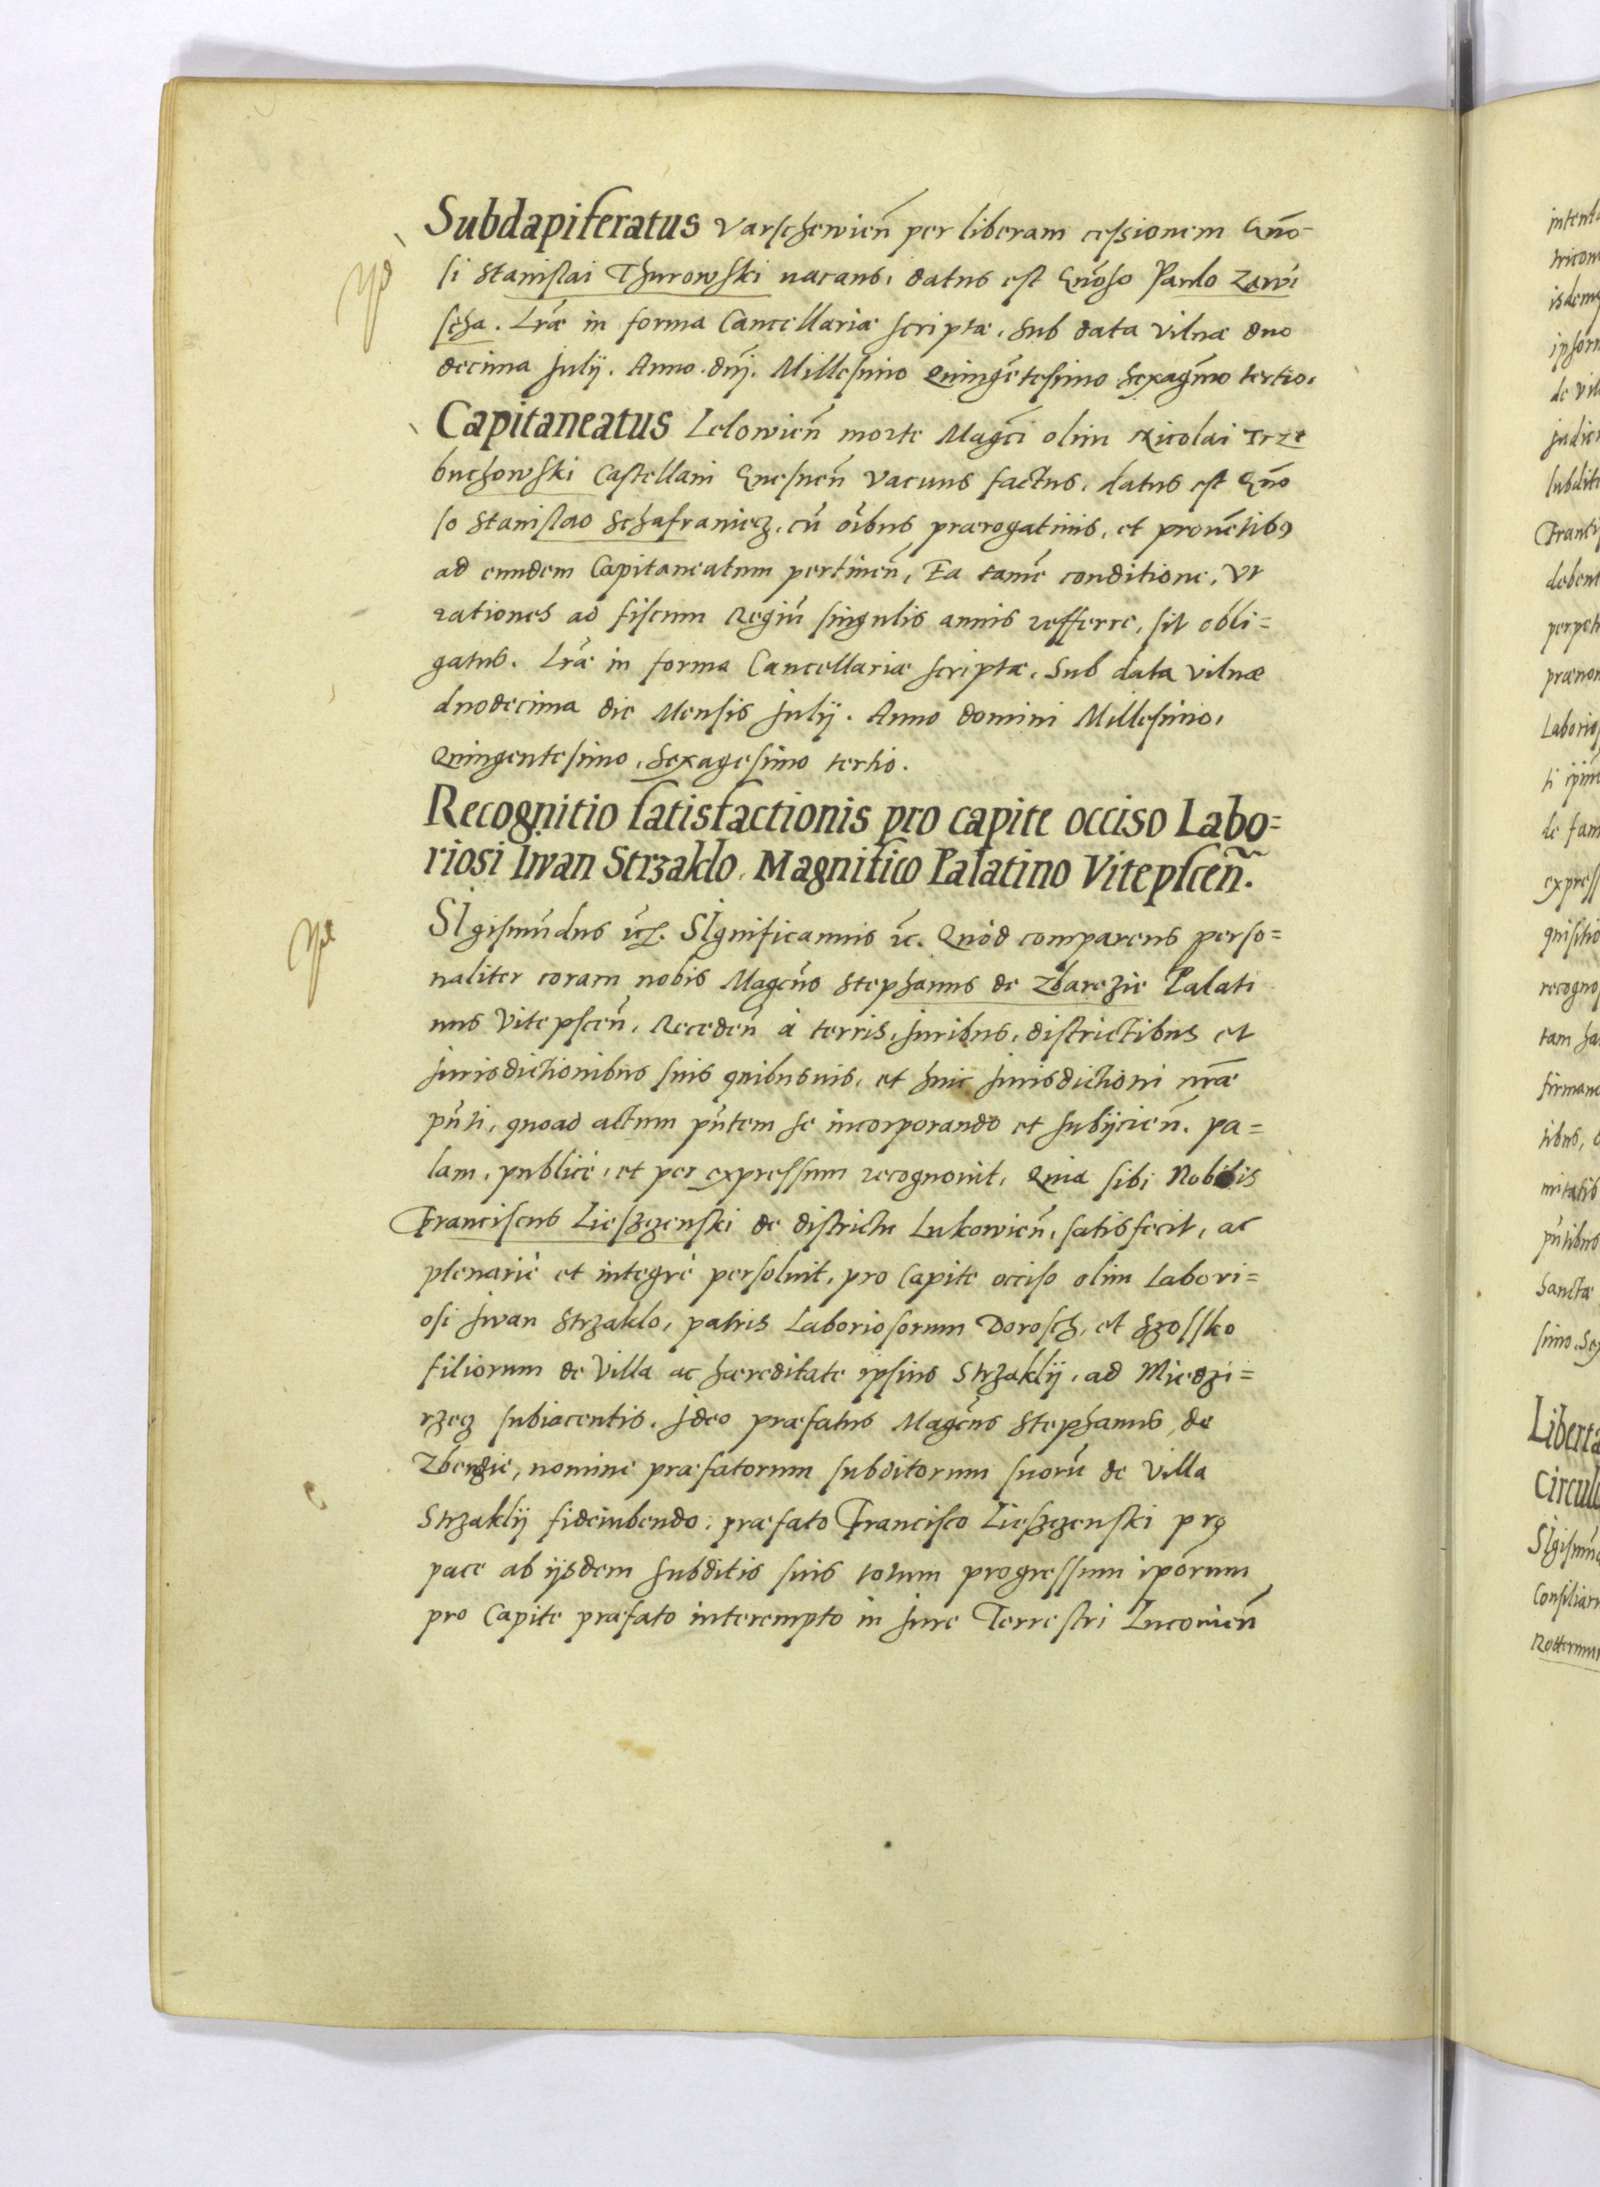 Subdapiferatus Varschewieñ per liberam cessionem Gño-
si Stanislai Thurowski uacans, datus est Gñoso Paulo Zawi
scha. Lrãe in forma Cancellariæ scriptæ. Sub data Vilnæ duo
decima Julij. Anno. dñj. Millesimo Quingẽtesimo Sexagẽmo tertio.
Capitaneatus Lelowieñ morte Magci olim Nicolai Trze
buchowski Castellani Gnesneñ Vacuus factus, datus est Gño
so Stanislao Schafraniecz, cũ oĩbus prærogatiuis, et prouẽtibꝰ
ad eundem Capitaneatum pertineñ, Ea tamẽ conditione, Vt
rationes ad fiscum Regiũ singulis annis refferre, sit obli=
gatus. Lrãe in forma Cancellariæ scriptæ, Sub data Vilnæ
duodecima die Mensis Julij. Anno domini Millesimo,
Quingentesimo, Sexagesimo tertio.
Recognitio satisfactionis pro capite occiso Labo=
riosi Iwan Strzaklo. Magnifico Palatino Vitepsceñ.
SIgismũdus &c. SIgnificamus &c. Quòd comparens perso=
naliter coram nobis Magcus Stephanus de Zbarezie Palati
nus Vitepsceñ. Recedeñ à terris, Juribus, districtibus et
Jurisdictionibus suis quibusuis, et huic Jurisdictioni nrãe
pñti, quoad actum pñtem se incorporando et subijcieñ. pa=
lam, publicè, et per expressum recognouit, Quia sibi Nobilis
Franciscus Lieszczenski de districtu Lukowieñ, satisfecit, ac
plenariè et integrè persoluit, pro Capite occiso olim Labori=
osi Jwan Strzaklo, patris Laboriosorum Dorosch, et
filiorum de Villa ac hæreditate ipsius Strzaklij, ad Miedzi=
rzecz subiacentis. Ideo præfatus Magcus Stephanus de
nomine præfatorum subditorum suorũ de Villa
Strzaklij fideiubendo, præfato Francisco Lieszczenski pro
pace ab ijsdem subditis suis totum progressum ipõrum
pro Capite præfato interempto in Jure Terrestri Lucouieñ